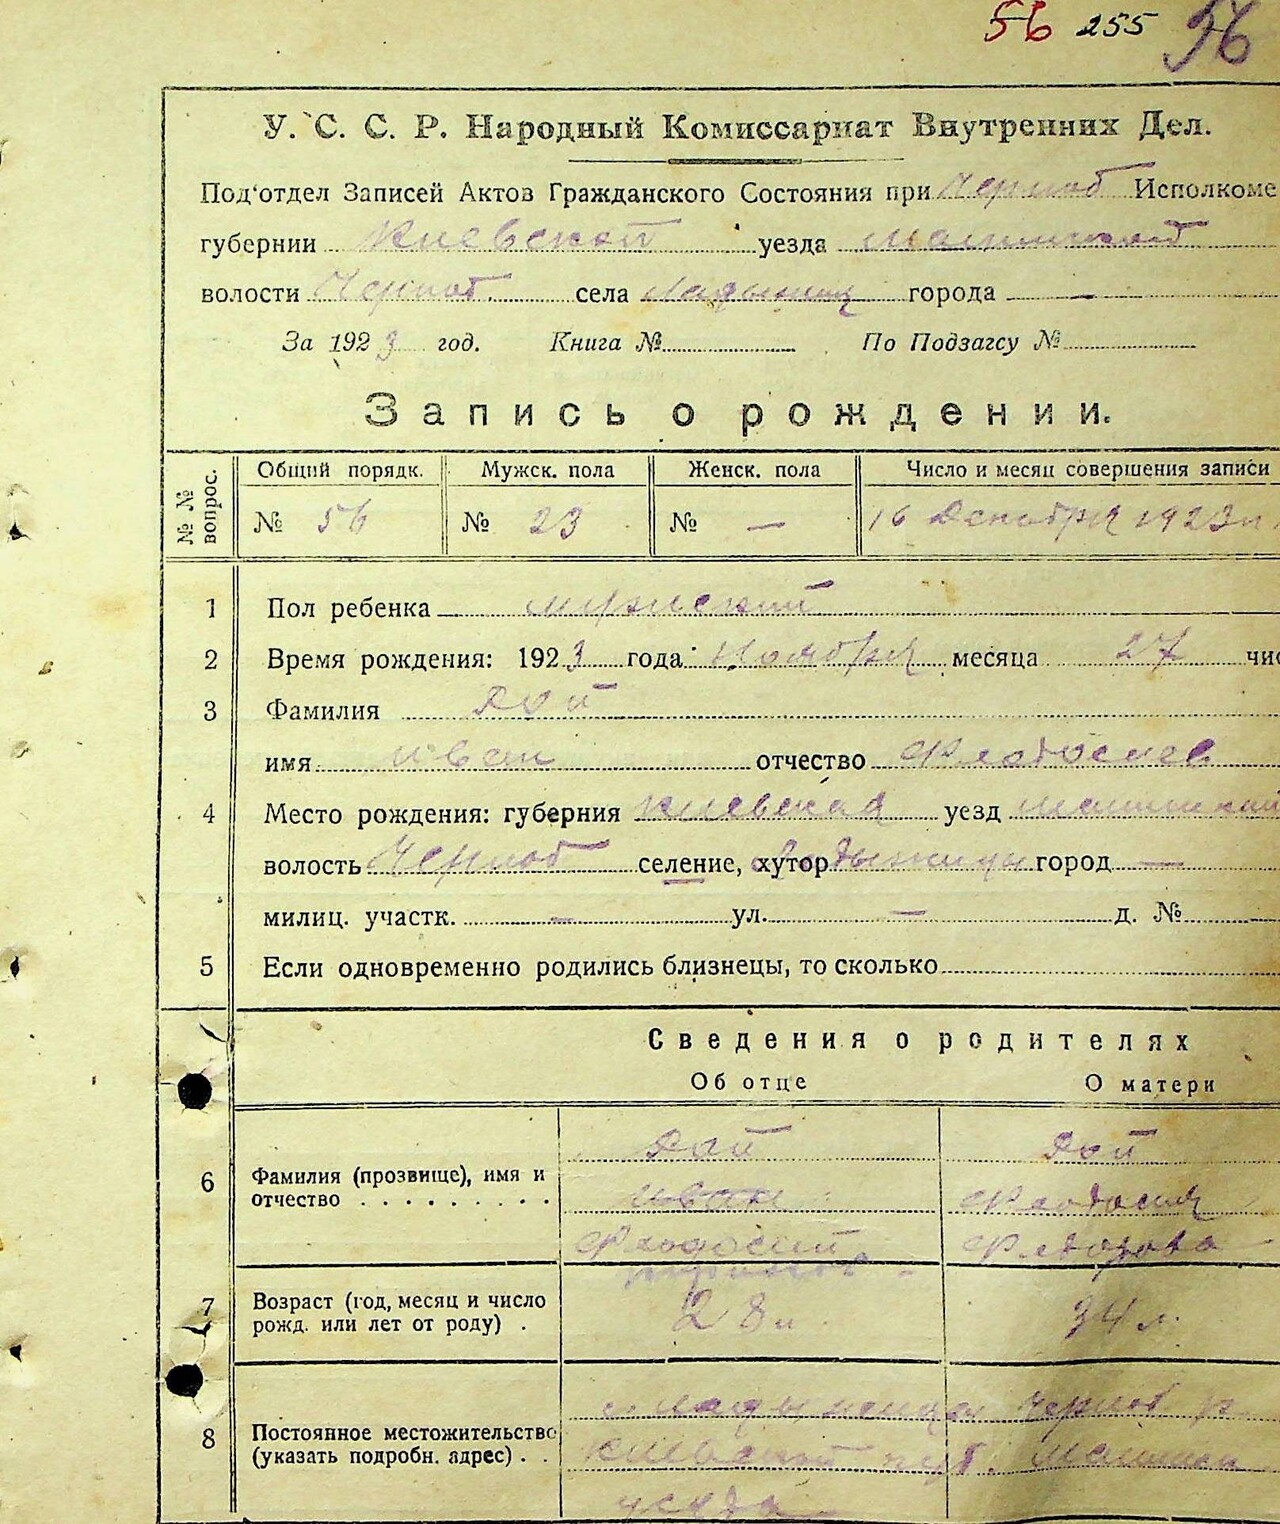 56 255 56
У. С. С. Р. Народный Комиссариат Внутренних Дел.
Под'отдел Записей Актов Гражданского Состояния при Черноб Исполкоме
губернии Киевской уезда
волости Черноб села города —
За 1923 год. Книга № По Подзагсу №
Запись о рождении.
№ № вопрос. Общий порядк. Мужск. пола Женск. пола Число и месяц совершения записи
№ 56 № 23 № — 16 Декабря 1923
1 Пол ребенка мужской
2 Время рождения: 1923 года Ноября месяца 27 чис
3 Фамилия Дой
имя Иван отчество Феодосиев
4 Место рождения: губерния Киевская уезд
волость Черноб селение, хутор город —
милиц. участк. — ул. — д. №
5 Если одновременно родились близнецы, то сколько
Сведения о родителях
Об отце О матери
6 Фамилия (прозвище), имя и отчество . . . . . . . . . Дой Дой
Иван Феодосия
Феодосий Федорова
7 Возраст (год, месяц и число рожд. или лет от роду) . 28 л. 34 л.
8 Постоянное местожительство (указать подробн. адрес) . . с. Черноб р.
Киевской губ.
уезда